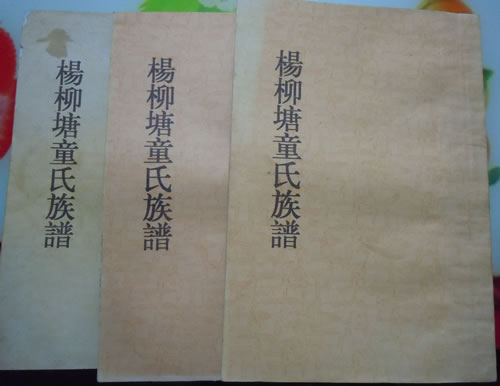 楊柳塘童氏族譜
楊柳塘童氏族譜
楊柳塘童氏族譜